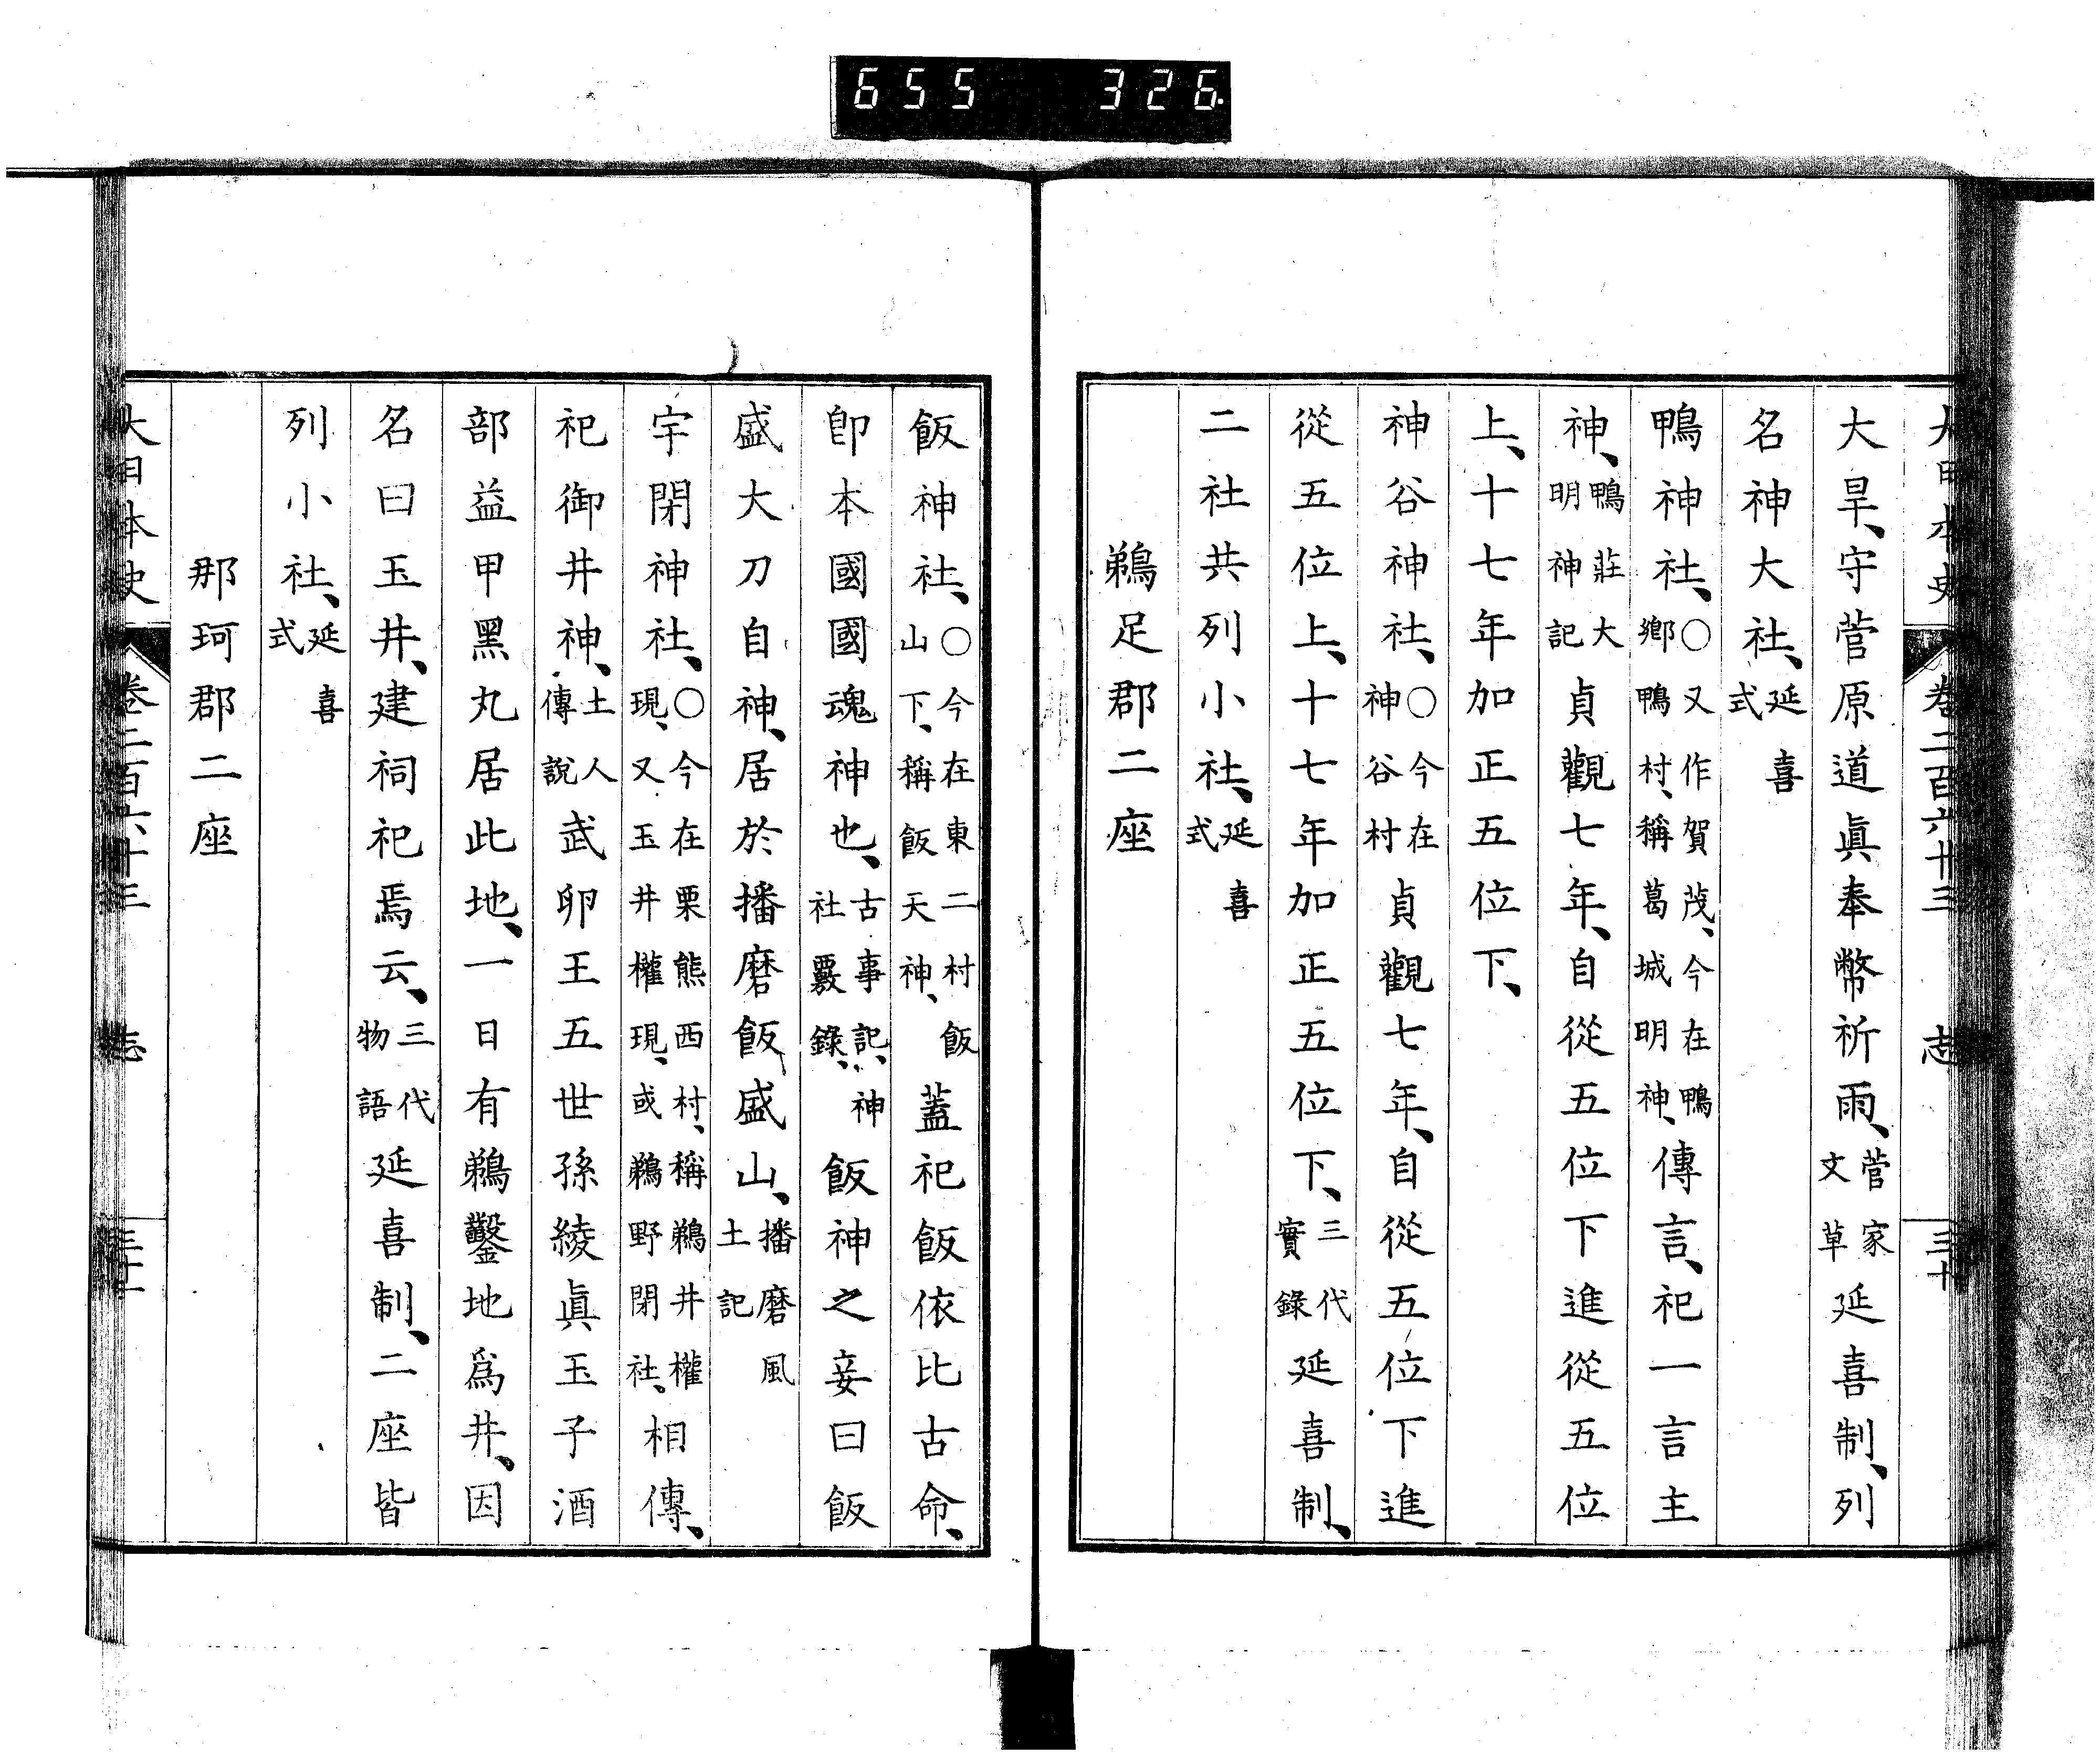 655 326
大日本史 卷二百六十三 志 三十
大旱、守菅原道眞奉幣祈雨、菅家文草延喜制、列
名神大社、延喜式
鴨神社、〇又作賀茂、今在鴨鄉鴨村、稱葛城明神、傳言、祀一言主
神、鴨莊大明神記貞觀七年、自從五位下進從五位
上、十七年加正五位下、
神谷神社、〇今在神谷村貞觀七年、自從五位下進
從五位上、十七年加正五位下、三代實錄延喜制、
二社共列小社、延喜式
鵜足郡二座
飯神社、〇今在東二村飯山下、稱飯天神、蓋祀飯依比古命、
卽本國國魂神也、古事記、神社覈錄、飯神之妾曰飯
盛大刀自神、居於播磨飯盛山、播磨風土記
宇閇神社、〇今在栗熊西村、稱鵜井權現、又玉井權現、或鵜野閇社、相傳、
祀御井神、土人傳說武卵王五世孫綾眞玉子酒
部益甲黑丸居此地、一日有鵜鑿地爲井、因
名曰玉井、建祠祀焉云、三代物語延喜制、二座皆
列小社、延喜式
那珂郡二座
大日本史 卷二百六十三 志